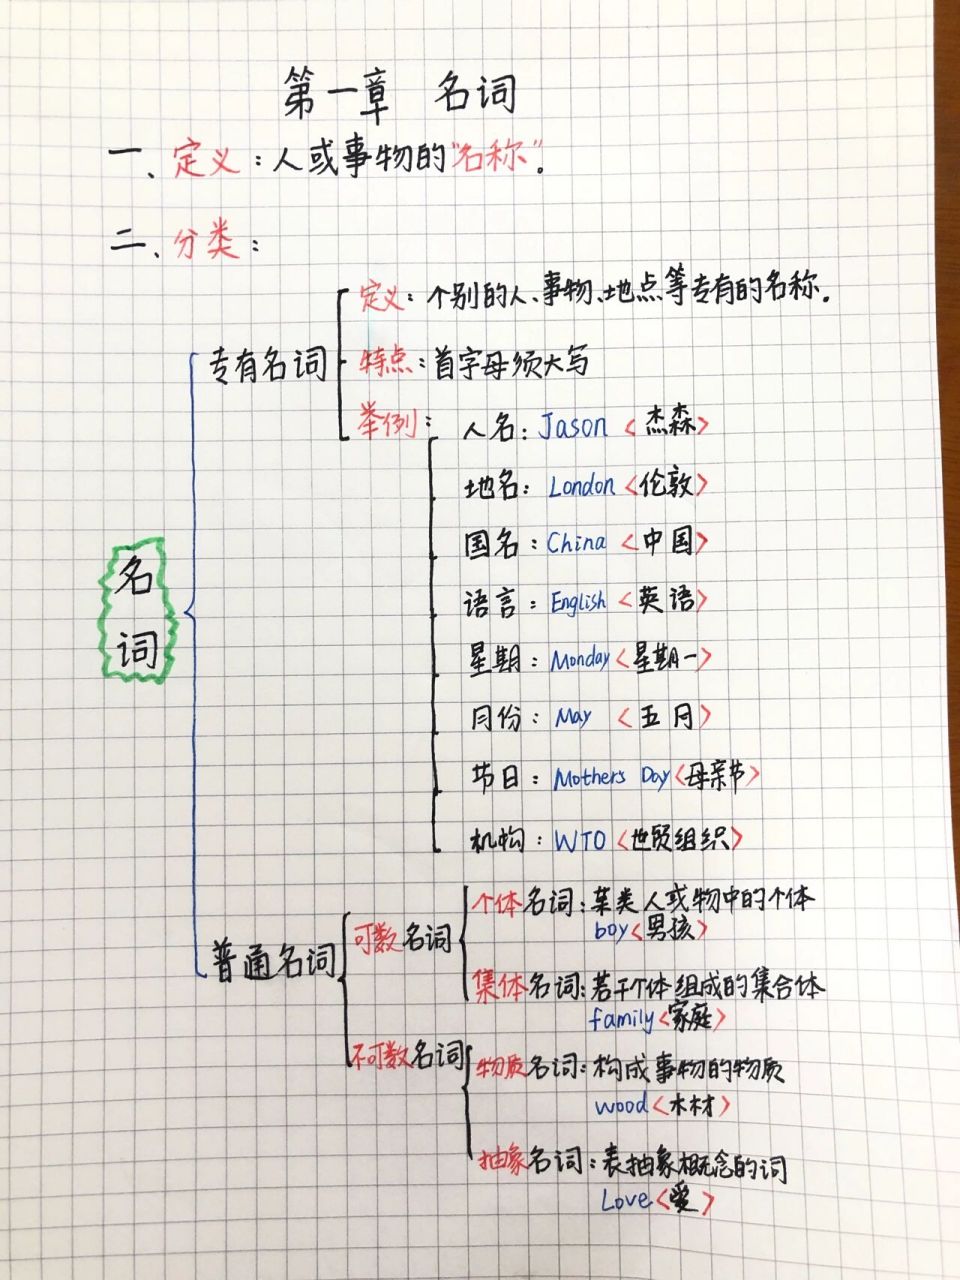 第一章 名词
一、定义：人或事物的"名称"。
二、分类：
名词
专有名词
定义：个别的人、事物、地点等专有的名称。
特点：首字母须大写
举例：
人名：Jason <杰森>
地名：London <伦敦>
国名：China <中国>
语言：English <英语>
星期：Monday <星期一>
月份：May <五月>
节日：Mothers Day <母亲节>
机构：WTO <世贸组织>
普通名词
可数名词
个体名词：某类人或物中的个体
boy <男孩>
集体名词：若干个体组成的集合体
family <家庭>
不可数名词
物质名词：构成事物的物质
wood <木材>
抽象名词：表抽象概念的词
Love <爱>